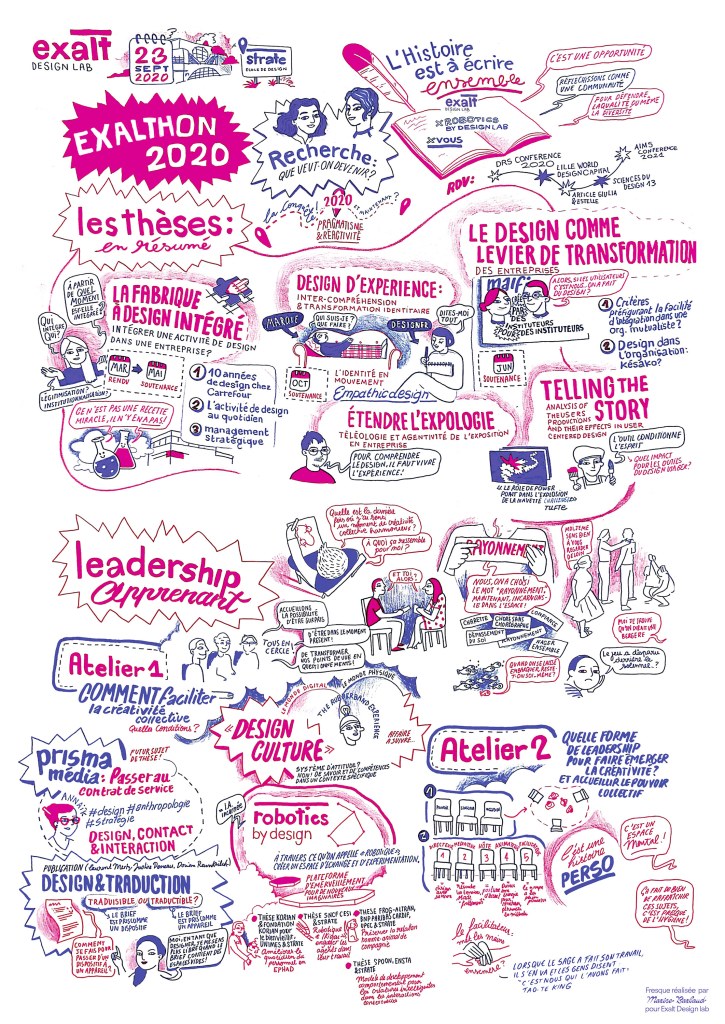 exalt
DESIGN LAB
23
SEPT
2020
strate
ÉCOLE DE DESIGN
L'Histoire
est à écrire
ensemble
exalt
DESIGN LAB
X ROBOTICS
BY DESIGN LAB
X VOUS
C'EST UNE OPPORTUNITÉ
RÉFLÉCHISSONS COMME
UNE COMMUNAUTÉ
POUR DÉFENDRE
LA QUALITÉ OU MÊME
LA DIVERSITÉ
EXALTHON
2020
Recherche:
QUE VEUT-ON DEVENIR?
RDV:
DRS CONFERENCE
2020
LILLE WORLD
DESIGN CAPITAL
ARTICLE GIULIA
& ESTELLE
SCIENCES DU
DESIGN 13
AIMS
CONFERENCE
2021
2020
PRAGMATISME
& RÉACTIVITÉ
ET MAINTENANT?
les thèses:
en résumé
À PARTIR
DE QUEL
MOMENT
EST-ELLE
INTÉGRÉE?
QUI
INTÈGRE
QUI?
LÉGITIMISATION?
INSTITUTIONNALISATION?
LA FABRIQUE
À DESIGN INTÉGRÉ
INTÉGRER UNE ACTIVITÉ DE DESIGN
DANS UNE ENTREPRISE?
MAR
RENDU
MAI
SOUTENANCE
1 10 années
de design chez
Carrefour
2 L'activité de design
au quotidien
3 management
stratégique
CE N'EST PAS UNE RECETTE
MIRACLE, IL N'Y EN A PAS!
DESIGN D'EXPERIENCE:
INTER-COMPRÉHENSION
& TRANSFORMATION IDENTITAIRE
QUI SUIS-JE?
QUE FAIRE!
DESIGNER
DITES-MOI
TOUT
OCT
SOUTENANCE
L'IDENTITÉ EN
MOUVEMENT
Empathic design
ÉTENDRE L'EXPOLOGIE
TÉLÉOLOGIE ET AGENTIVITÉ DE L'EXPOSITION
EN ENTREPRISE
POUR COMPRENDRE
LE DESIGN, IL FAUT VIVRE
L'EXPÉRIENCE!
LE DESIGN COMME
LEVIER DE TRANSFORMATION
DES ENTREPRISES
maif
ALORS, SI LES UTILISATEURS
C'EST NOUS.. ON A FAIT
DU DESIGN?
CRÉÉE
PAR DES
INSTITUTEURS
POUR DES INSTITUTEURS
1 Critères
préfigurant la facilité
d'intégration dans une
org. mutualiste?
2 Design dans
l'organisation:
késako?
JUN
SOUTENANCE
TELLING THE
STORY
ANALYSIS OF
THE USERS
PRODUCTIONS
AND THEIR EFFECTS IN USER
CENTERED DESIGN
L'OUTIL CONDITIONNE
L'ESPRIT
QUEL IMPACT
POUR LES OUTILS
DU DESIGN USAGER?
LE RÔLE DE POWER
POINT DANS L'EXPLOSION
DE LA NAVETTE CHALLENGER
TUFTE
leadership
apprenant
Quelle est la dernière
fois où j'ai senti
un moment de créativité
collective harmonieuse?
À quoi ça ressemble
pour moi?
ET TOI
ALORS?
RAYONNEMENT
NOUS, ON A CHOISI
LE MOT "RAYONNEMENT,
MAINTENANT, INCARNONS-
LE DANS L'ESPACE!
MOI, JE ME
SENS BIEN
À VOUS
REGARDER
DE LOIN
MOI JE TROUVE
QU'ON DIRAIT UNE
BERGÈRE
Le jeu a disparu
derrière le
sérieux..?
CHARRETTE
CHORISTES SANS
CHORÉGRAPHE
CONFIANCE
DÉPASSEMENT
DU SOI
RAYONNEMENT
NAGER
ENSEMBLE
QUAND ON SE LAISSE
EMBARQUER, RESTE-
T-ON SOI-MÊME?
ACCUEILLONS
LA POSSIBILITÉ
D'ÊTRE SURPRIS
TOUS EN
CERCLE!
D'ÊTRE DANS LE MOMENT
PRÉSENT!
DE TRANSFORMER
NOS POINTS DE VUE EN
QUESTIONNEMENTS!
Atelier 1
COMMENT faciliter
la créativité
collective
Quelles conditions?
LE MONDE DIGITAL
LE MONDE PHYSIQUE
THE RUBBERBAND EXPERIENCE
« DESIGN
CULTURE »
AFFAIRE
À SUIVRE..
SYSTÈME D'ATTITUDE?
NON! DE SAVOIR ET DE COMPÉTENCES
DANS UN CONTEXTE SPÉCIFIQUE
Atelier 2
QUELLE FORME
DE LEADERSHIP
POUR FAIRE ÉMERGER
LA CRÉATIVITÉ?
ET ACCUEILLIR LE POUVOIR
COLLECTIF
prisma
média: Passer au
contrat de service
FUTUR SUJET
DE THÈSE!
ANNA
#design #anthropologie
#stratégie
DESIGN, CONTACT
& INTERACTION
robotics
by design
À TRAVERS CE QU'ON APPELLE "ROBOTIQUE",
CRÉER UN ESPACE D'ÉCHANGE ET D'EXPÉRIMENTATION.
PLATEFORME
D'ÉMERVEILLEMENT,
POUR DE NOUVEAUX
IMAGINAIRES
THÈSE KORIAN
& FONDATION
KORIAN POUR
LE BIEN VIEILLIR,
UNIMES & STRATE
Améliorer le
quotidien du
personnel en
EPHAD
THÈSE SNCF CESI
& STRATE
THÈSE SPOON, ENSTA
& STRATE
1
2
C'est une
histoire
PERSO
C'EST UN
ESPACE
MENTAL!
ÇA FAIT DU BIEN
DE RAFRAÎCHIR
CES SUJETS,
C'EST PRESQUE
DE L'HYGIÈNE!
Le facilitateur:
ensemble?
LORSQUE LE SAGE A FAIT SON TRAVAIL,
IL S'EN VA ET LES GENS DISENT
"C'EST NOUS QUI L'AVONS FAIT"
TAO-TE KING
PUBLICATION
DESIGN & TRADUCTION
TRADUISIBLE OU TRADUCTIBLE?
LE BRIEF
EST PRIS COMME
UN DISPOSITIF
LE BRIEF
EST PRIS COMME
UN APPAREIL
COMMENT
JE FAIS POUR
PASSER D'UN
DISPOSITIF À
UN APPAREIL?
MOI, EN TANT QUE
DESIGNER, JE ME SENS
PLUS LIBRE QUAND LE
BRIEF CONTIENT DES
ESPACES VIDES!
Fresque réalisée par
pour Exalt Design lab